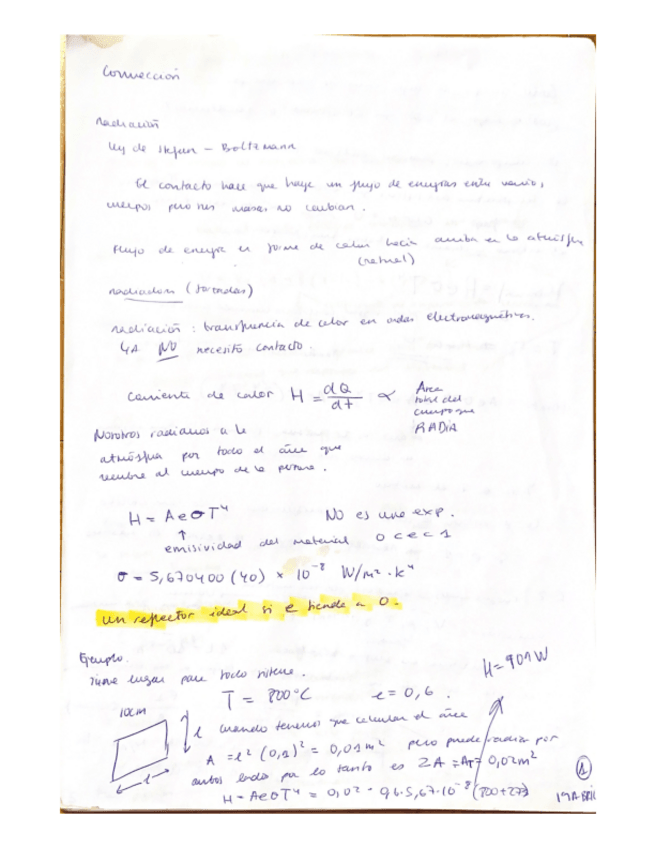 Convección
Radiación
Ley de Stefan - Boltzmann
El contacto hace que haya un flujo de energías entre varios
cuerpos pero sus masas no cambian.
Flujo de energía en forma de calor hacia arriba en la atmósfera
(natural)
radiadores
radiación: transferencia de calor en ondas electromagnéticas.
NO necesita contacto.
Corriente de calor H = dQ/dt ∝ Area
total del
cuerpo que
RADIA
Nosotros radiamos a la
atmósfera por todo el área que
recubre al cuerpo de la persona.
H = AeσT⁴ NO es una exp.
↑
emisividad del material 0<e<1
σ = 5,670400 (40) × 10⁻⁸ W/m²·K⁴
un reflector ideal si e tiende a 0.
Ejemplo.
Tiene lugar para todo sistema.
H=901W
T = 800°C e = 0,6.
10cm
l cuando tenemos que calcular el área
A = l² (0,1)² = 0,01m² pero puede radiar por
ambos lados por lo tanto es 2A = AT = 0,02m²
l
H = AeσT⁴ = 0,02 · 0,6·5,67·10⁻⁸ (800+273)
1
19ABRIL